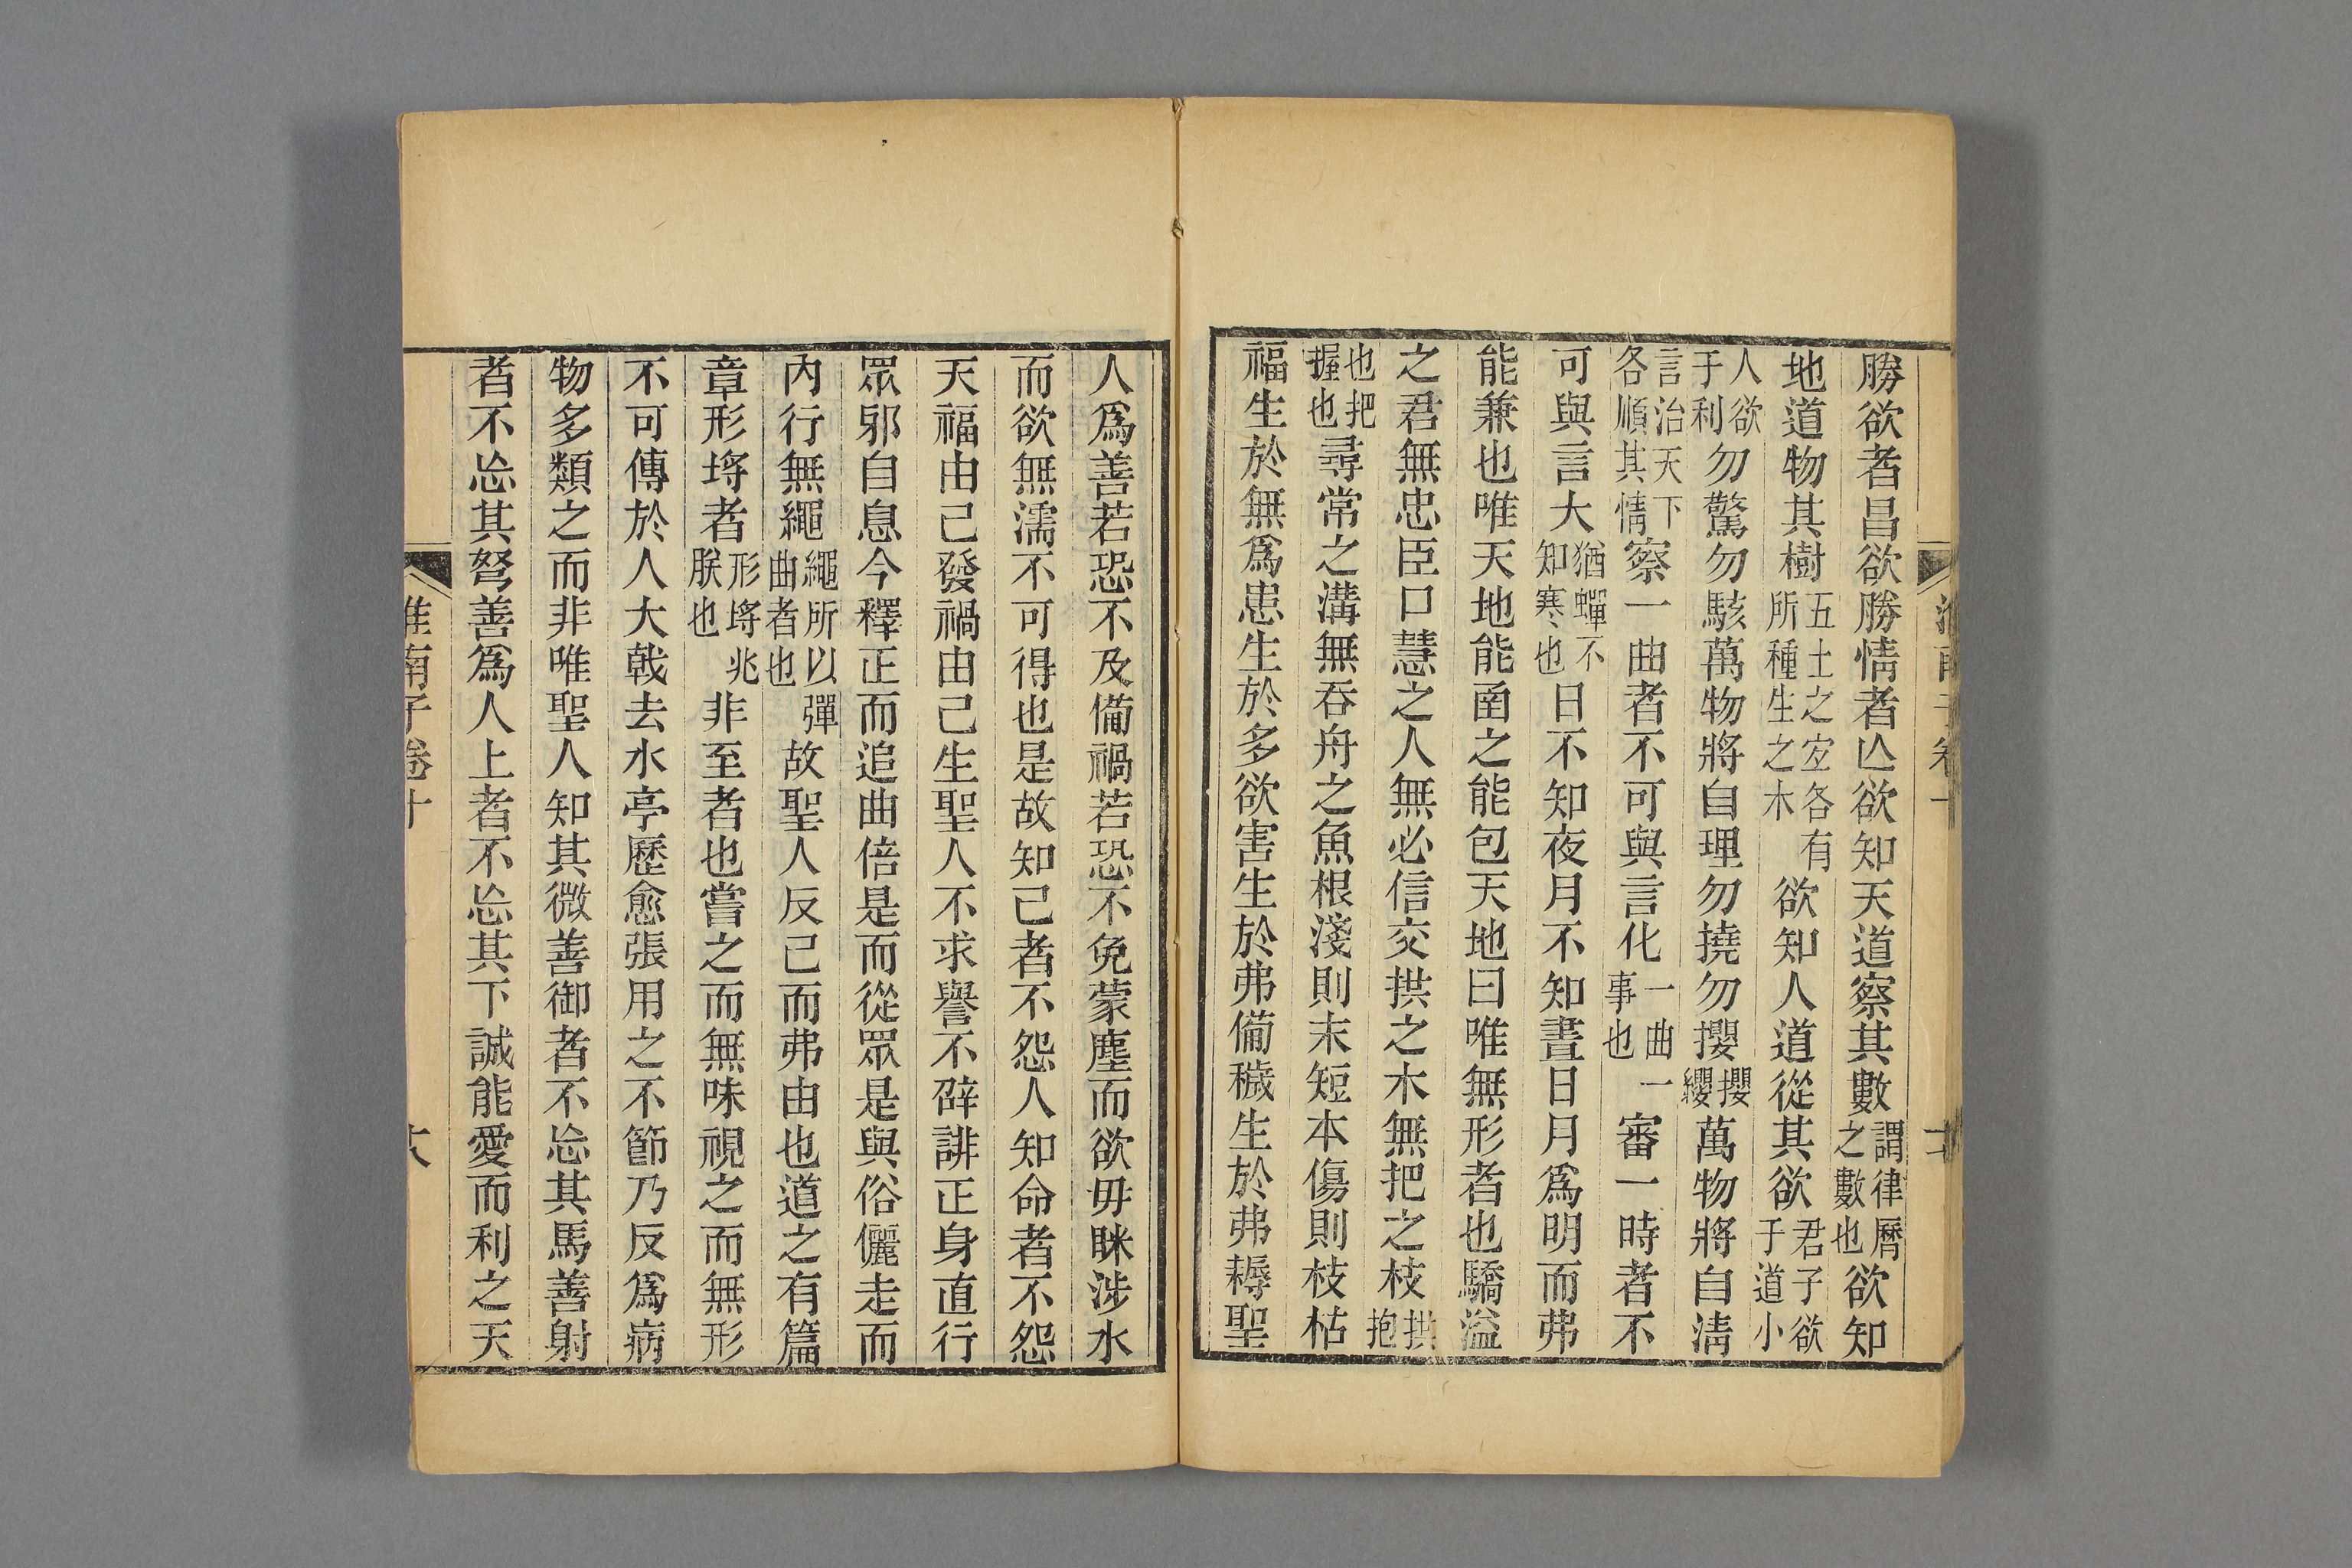 勝欲者昌欲勝情者亾欲知天道察其數謂律曆之數也欲知
地道物其樹五土之宐各有所種生之木欲知人道從其欲君子欲于道小
人欲于利勿驚勿駭萬物將自理勿撓勿攖攖纓萬物將自淸
言治天下各順其情察一曲者不可與言化一曲一事也審一時者不
可與言大猶蟬不知寒也日不知夜月不知晝日月爲明而弗
能兼也唯天地能圅之能包天地曰唯無形者也驕溢
之君無忠臣口慧之人無必信交拱之木無把之枝拱抱
也把握也尋常之溝無吞舟之魚根淺則末短本傷則枝枯
福生於無爲患生於多欲害生於弗備穢生於弗耨聖
人爲善若恐不及備禍若恐不免蒙塵而欲毋眯涉水
而欲無濡不可得也是故知己者不怨人知命者不怨
天福由己發禍由己生聖人不求譽不辟誹正身直行
眾邪自息今釋正而追曲倍是而從眾是與俗儷走而
內行無繩繩所以彈曲者也故聖人反己而弗由也道之有篇
章形埒者形埒兆朕也非至者也嘗之而無味視之而無形
不可傳於人大戟去水亭歷愈張用之不節乃反爲病
物多類之而非唯聖人知其微善御者不忘其馬善射
者不忘其弩善爲人上者不忘其下誠能愛而利之天
淮南子卷十